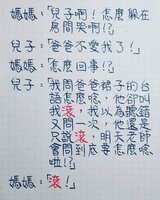 媽媽:「兒子啊!怎麼躲在
房間哭啊!?」
兒子:「爸爸不愛我了!」
媽媽:「怎麼回事!?」
兒子:「我問爸爸梯子的台
語怎麼唸,他卻叫
我滾,我以為聽錯
又問一次,他還是
只說滾,明天老師
會問到底要怎麼唸
啦!?」
媽媽:「滾!」